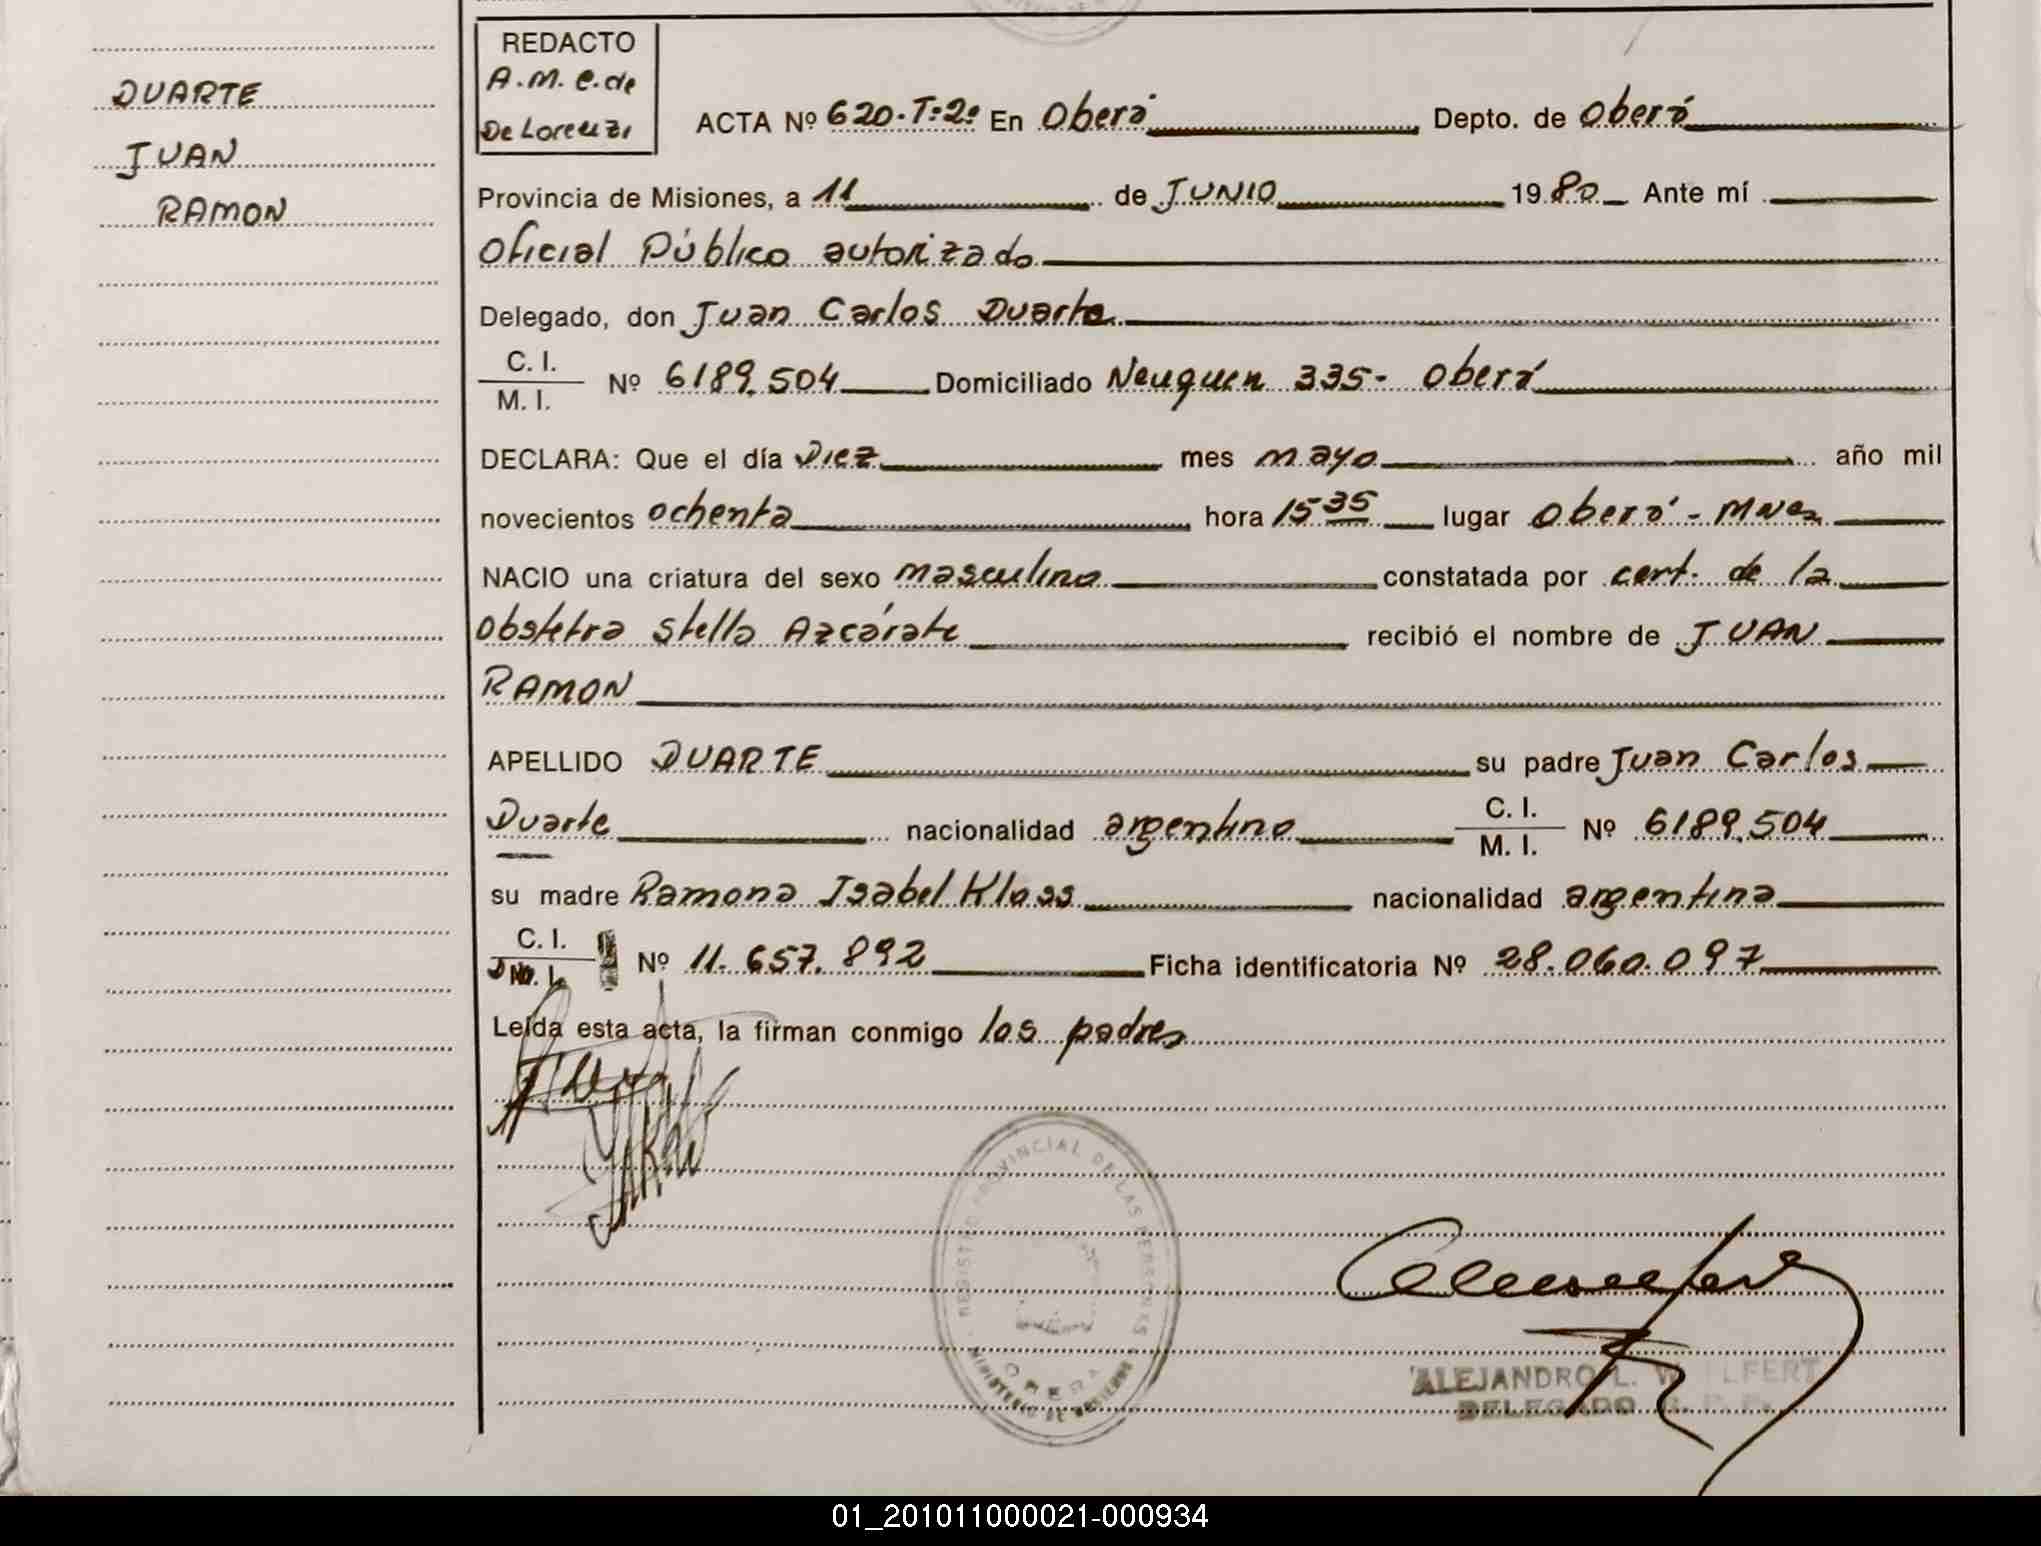 DUARTE
JUAN
RAMON
REDACTO
A.M.C. de
De Lorenzi
ACTA Nº 620.T:2º En Oberá Depto. de Oberá
Provincia de Misiones, a 11 de JUNIO 1980 Ante mí
Oficial Público autorizado
Delegado, don Juan Carlos Duarte
C. I.
M. I.
Nº 6189.504 Domiciliado Neuquen 335- Oberá
DECLARA: Que el día Diez mes mayo año mil
novecientos ochenta hora 15 35 lugar Oberá - Mnes
NACIO una criatura del sexo masculino constatada por cert. de la
Obstetra Stella Azcárate recibió el nombre de JUAN
RAMON
APELLIDO DUARTE su padre Juan Carlos
Duarte nacionalidad argentino C. I. M. I. Nº 6189.504
su madre Ramona Isabel Kloss nacionalidad argentina
C. I. Nº 11.657.892 Ficha identificatoria Nº 28.060.097
Leída esta acta, la firman conmigo los padres
REGISTRO PROVINCIAL DE LAS PERSONAS
OBERA
MINISTERIO DE GOBIERNO
ALEJANDRO L.
DELEGADO
01_201011000021-000934